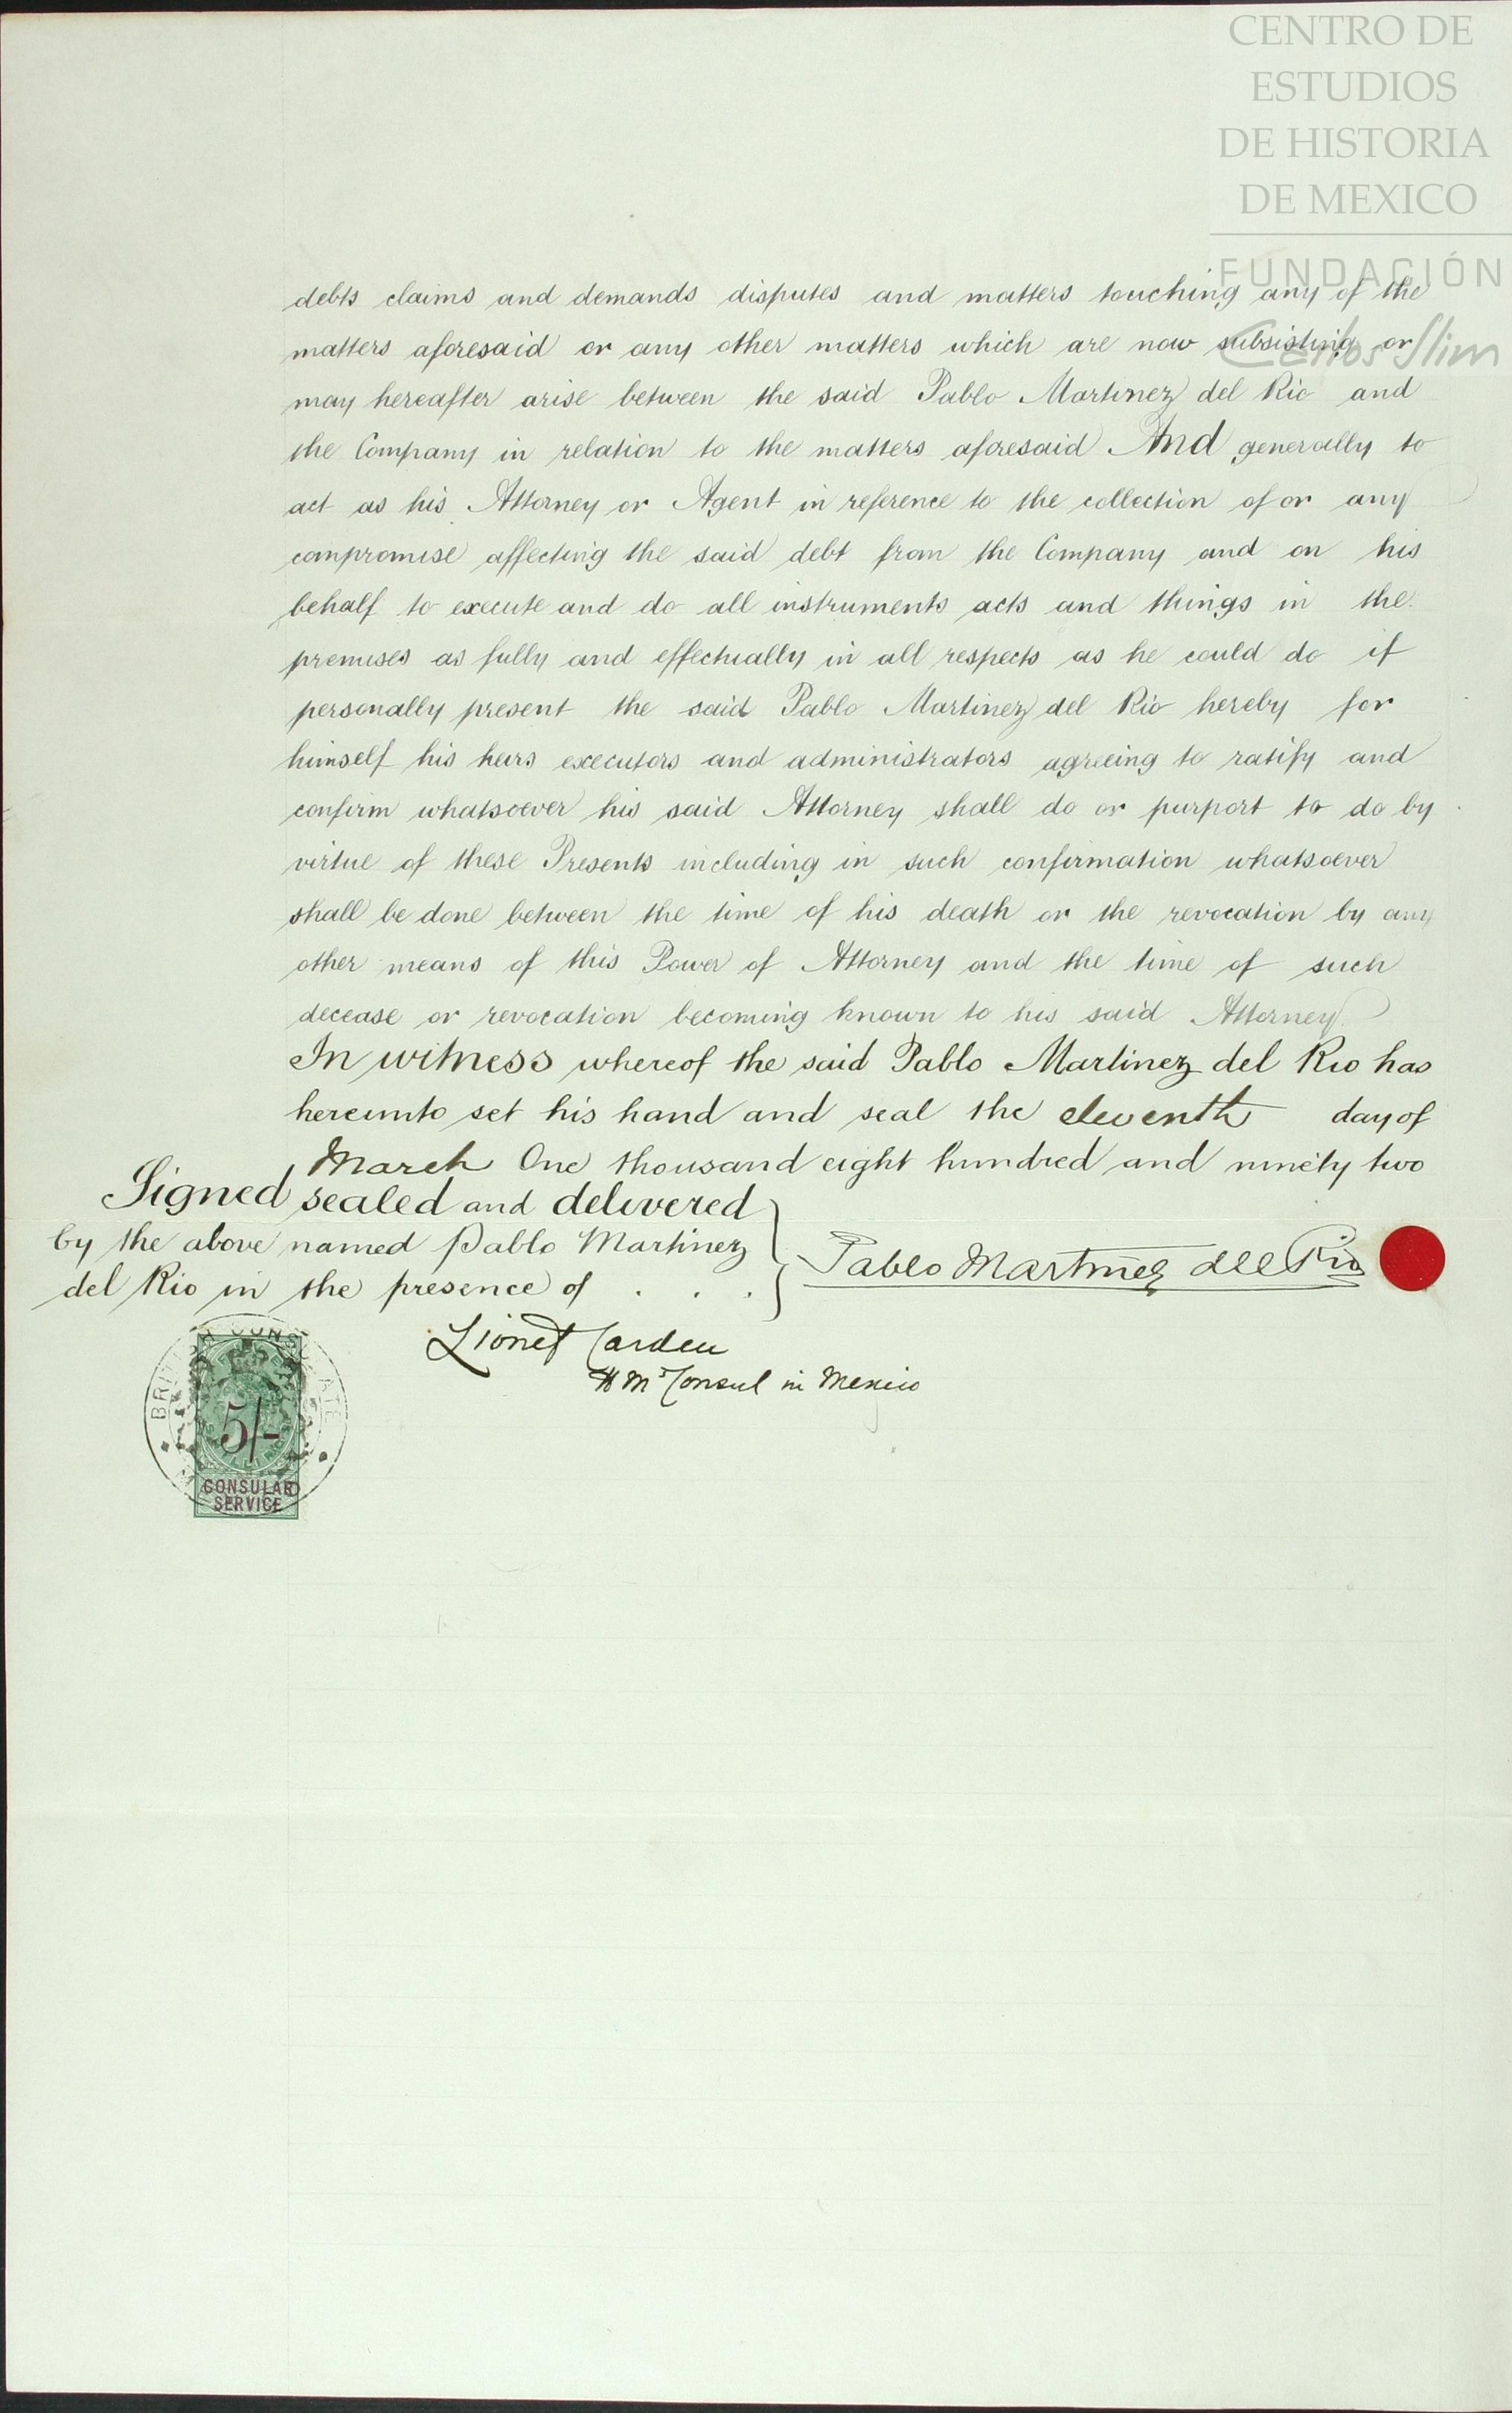 CENTRO DE
ESTUDIOS
DE HISTORIA
DE MEXICO
FUNDACIÓN
Carlos Slim
debts claims and demands disputes and matters touching any of the
matters aforesaid or any other matters which are now subsisting or
may hereafter arise between the said Pablo Martinez del Rio and
the Company in relation to the matters aforesaid And generally to
act as his Attorney or Agent in reference to the collection of or any
compromise affecting the said debt from the Company and on his
behalf to execute and do all instruments acts and things in the
premises as fully and effectually in all respects as he could do if
personally present the said Pablo Martinez del Rio hereby for
himself his heirs executors and administrators agreeing to ratify and
confirm whatsoever his said Attorney shall do or purport to do by
virtue of these Presents including in such confirmation whatsoever
shall be done between the time of his death or the revocation by any
other means of this Power of Attorney and the time of such
decease or revocation becoming known to his said Attorney
In witness whereof the said Pablo Martinez del Rio has
hereunto set his hand and seal the eleventh day of
March One thousand eight hundred and ninety two
Signed sealed and delivered
by the above named Pablo Martinez
del Rio in the presence of . . .
Pablo Martinez del Rio
Lionel Carden
H M's Consul in Mexico
BRITISH CONSULATE
5/-
CONSULAR
SERVICE